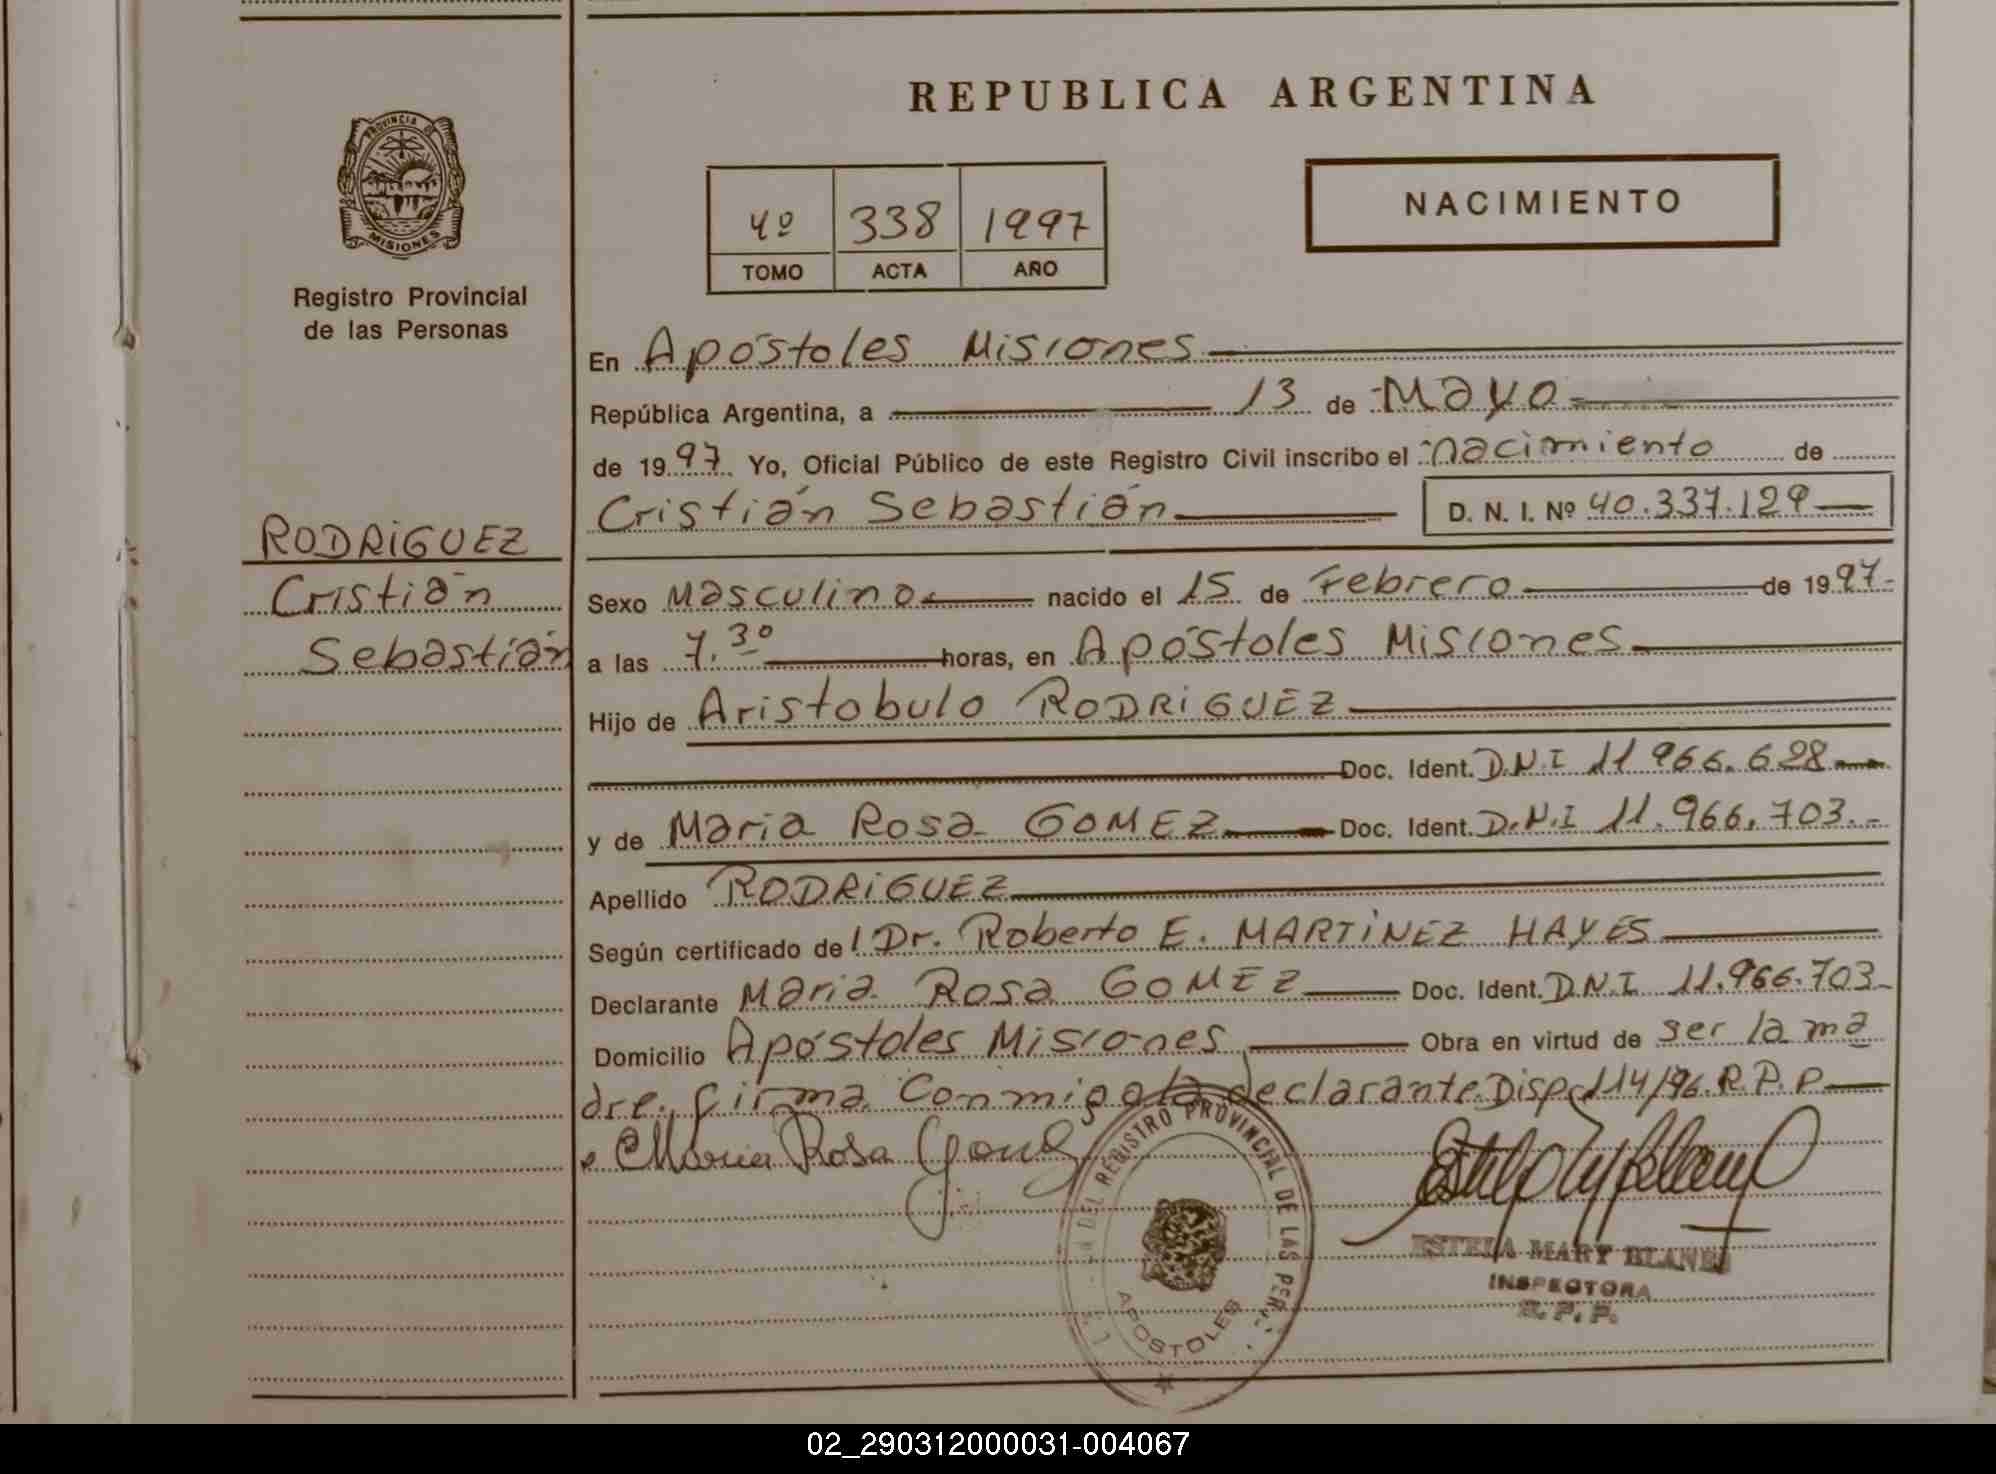 REPUBLICA ARGENTINA
PROVINCIA DE
MISIONES
Registro Provincial
de las Personas
4º 338 1997
TOMO ACTA AÑO
NACIMIENTO
RODRIGUEZ
Cristián
Sebastián
En Apóstoles Misiones
República Argentina, a 13 de Mayo
de 1997. Yo, Oficial Público de este Registro Civil inscribo el nacimiento de
Cristián Sebastián D. N. I. Nº 40.337.129
Sexo Masculino nacido el 15 de Febrero de 1997.
a las 7.30 horas, en Apóstoles Misiones
Hijo de Aristobulo RODRiGUEZ
Doc. Ident. D.N.I 11 966.628
y de Maria Rosa GOMEZ Doc. Ident. D.N.I 11.966.703.-
Apellido RODRiGUEZ
Según certificado de l Dr. Roberto E. MARTiNEZ HAYES
Declarante Maria Rosa GOMEZ Doc. Ident. D.N.I 11.966.703-
Domicilio Apóstoles Misiones Obra en virtud de ser la ma
dre. firma conmigo la declarante. Disp. 114/96. R.P.P
Maria Rosa Gomez
DEL REGISTRO PROVINCIAL DE LAS PER
APOSTOLES
ESTELA MARY BLANE
INSPECTORA
R. P. P.
02_290312000031-004067